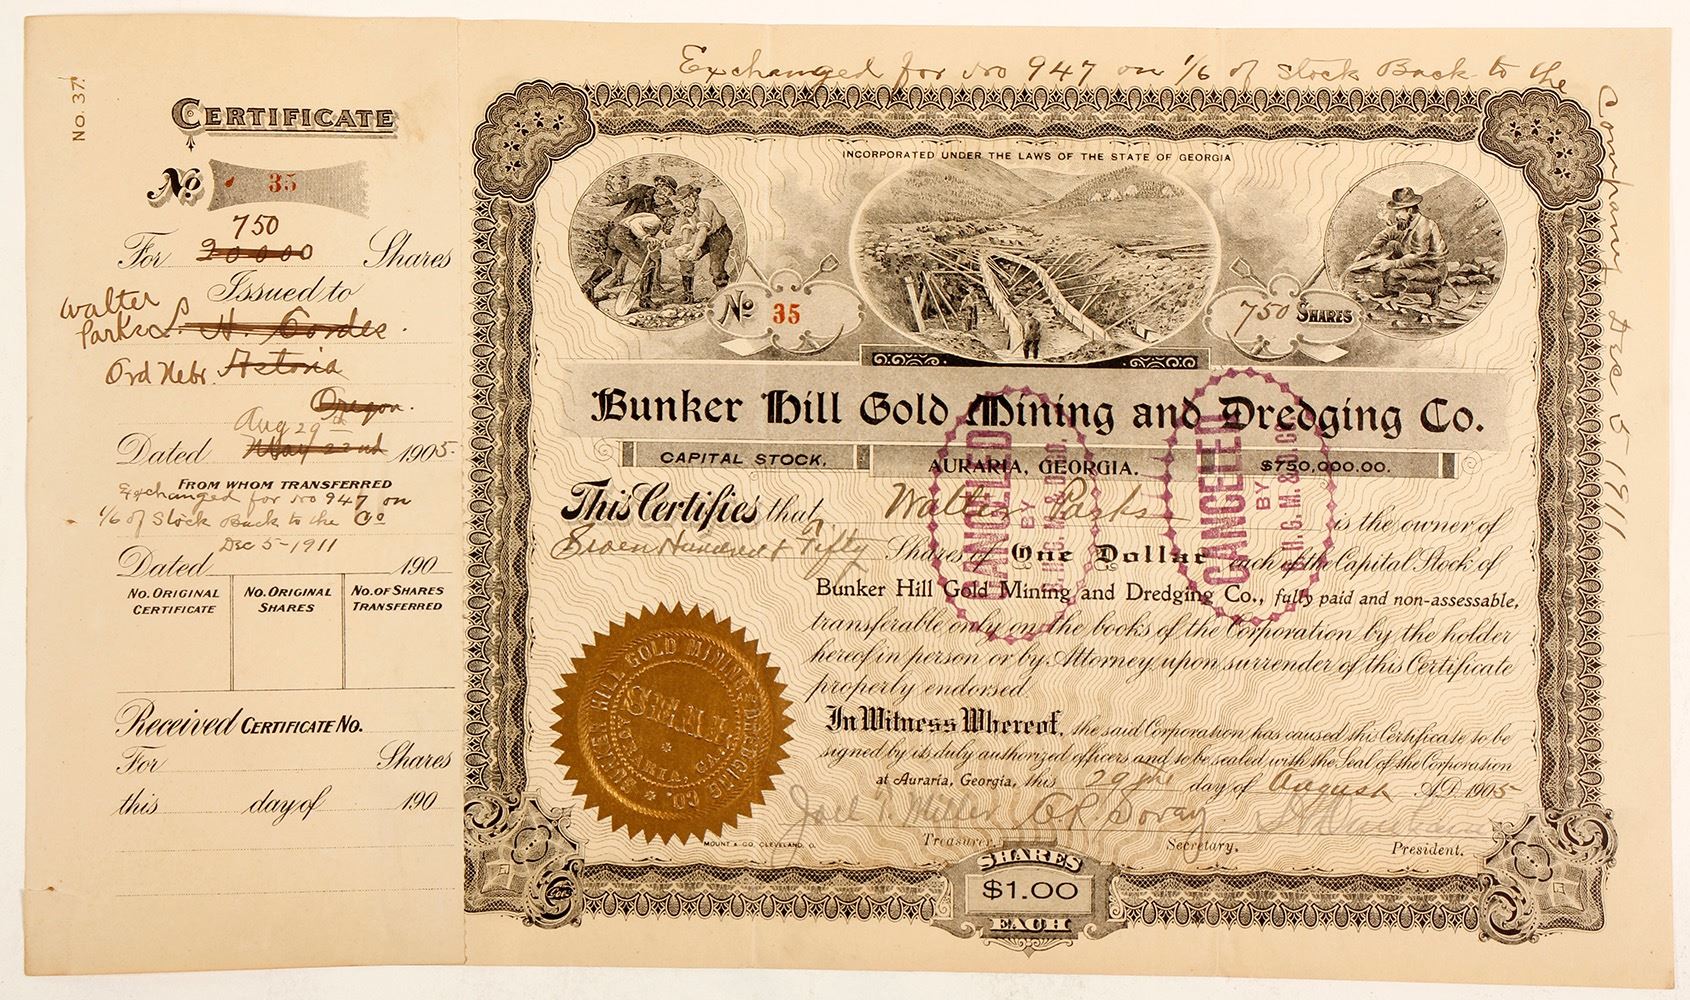 No. 37.
CERTIFICATE
No 35
750
20000
For Shares
Issued to
Walter
Parks
H. Cordes
Ord Nebr. Astoria
Oregon.
Aug 29th
Dated May 22nd 1905
FROM WHOM TRANSFERRED
Exchanged for No 947 on
1/6 of Stock Back to the Co
Dec 5-1911
Dated 190
NO. ORIGINAL CERTIFICATE
NO. ORIGINAL SHARES
NO. OF SHARES TRANSFERRED
Received CERTIFICATE NO.
For Shares
this day of 190
Exchanged for No 947 on 1/6 of Stock Back to the
Company Dec 5 1911
INCORPORATED UNDER THE LAWS OF THE STATE OF GEORGIA
No 35
750 SHARES
Bunker Hill Gold Mining and Dredging Co.
CAPITAL STOCK. AURARIA, GEORGIA. $750,000.00.
This Certifies that Walter Parks is the owner of
Seven Hundred & Fifty Shares of One Dollar each of the Capital Stock of
Bunker Hill Gold Mining and Dredging Co., fully paid and non-assessable,
transferable only on the books of the Corporation by the holder
hereof in person or by Attorney, upon surrender of this Certificate
properly endorsed.
In Witness Whereof, the said Corporation has caused this Certificate to be
signed by its duly authorized officers and to be sealed with the Seal of the Corporation
at Auraria, Georgia, this 29th day of August A.D. 1905
Joel T. Miller
Treasurer. Secretary. President.
CANCELED
BY
B. H. G. M. & D. CO.
CANCELED
BY
B. H. G. M. & D. CO.
BUNKER HILL GOLD MINING AND DREDGING CO.
SEAL
AURARIA, GA.
MOUNT & CO. CLEVELAND, O.
SHARES
$1.00
EACH